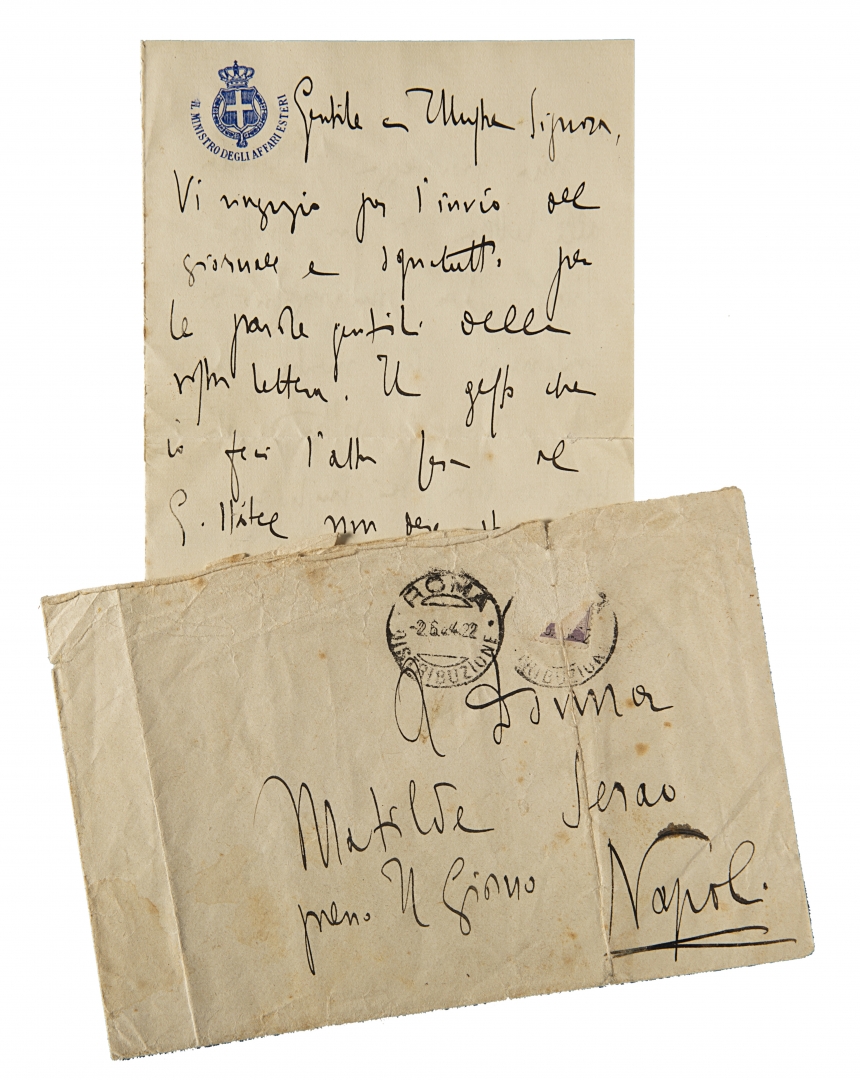 IL MINISTRO DEGLI AFFARI ESTERI
Gentile e Illustre Signora,
Vi ringrazio per l'invio del
giornale e sopratutto per
le parole gentili della
vostra lettera. Il gesto che
io feci l'altra sera al
G. Hôtel non
ROMA
DISTRIBUZIONE
A Donna
Matilde Serao
presso Il Giorno
Napoli